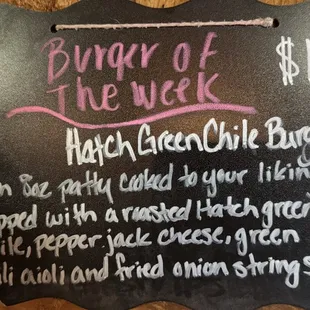 Burger of
The week
$
Hatch Green Chile Burg
n 8oz patty cooked to your likin
pped with a roasted Hatch green
ile, pepper jack cheese, green
ili aioli and fried onion strings